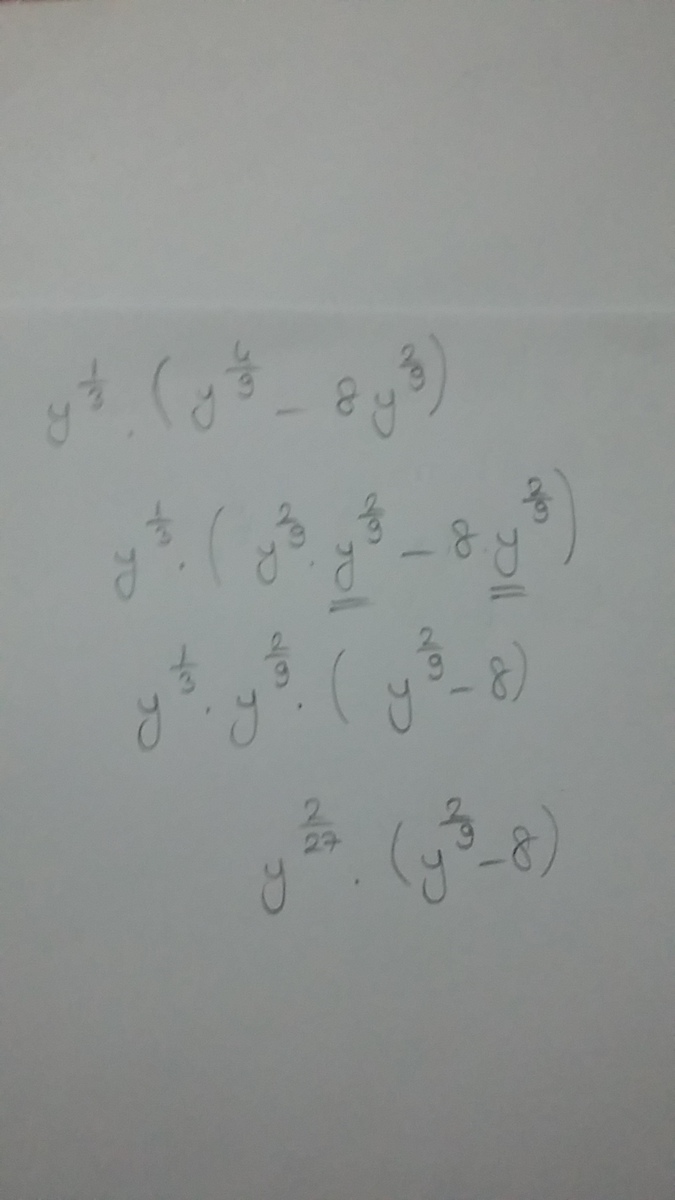 y^(1/3) . (y^(4/9) - 8y^(2/9))
y^(1/3) . (y^(2/9) . y^(2/9) - 8 y^(2/9))
y^(1/3) . y^(2/9) . (y^(2/9) - 8)
y^(2/27) . (y^(2/9) - 8)